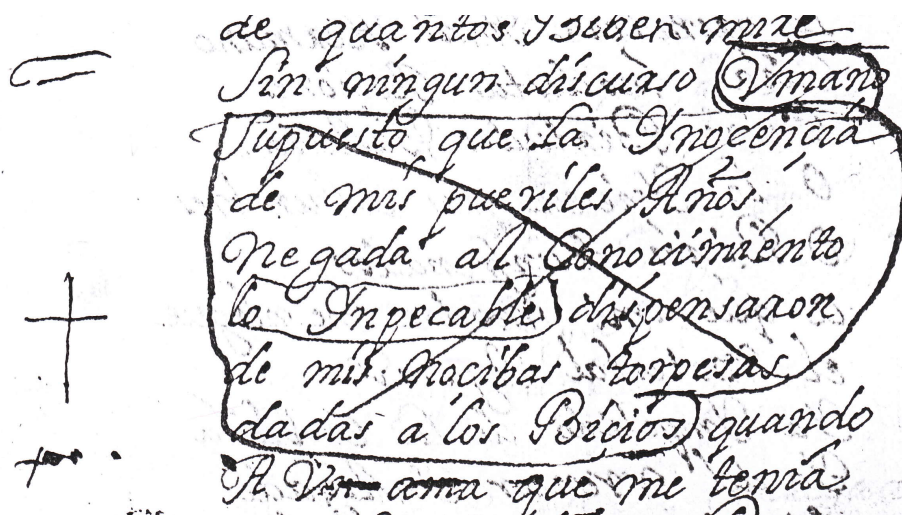 de quantos Biben mire
Sin ningun discurso Vmano
Supuesto que la Ynocencia
de mis pueriles Años
negada al Conocimiento
lo Ynpecable dispensaron
de mis nocibas torpesas
dadas a los Bicios quando
A Vn ama que me tenia